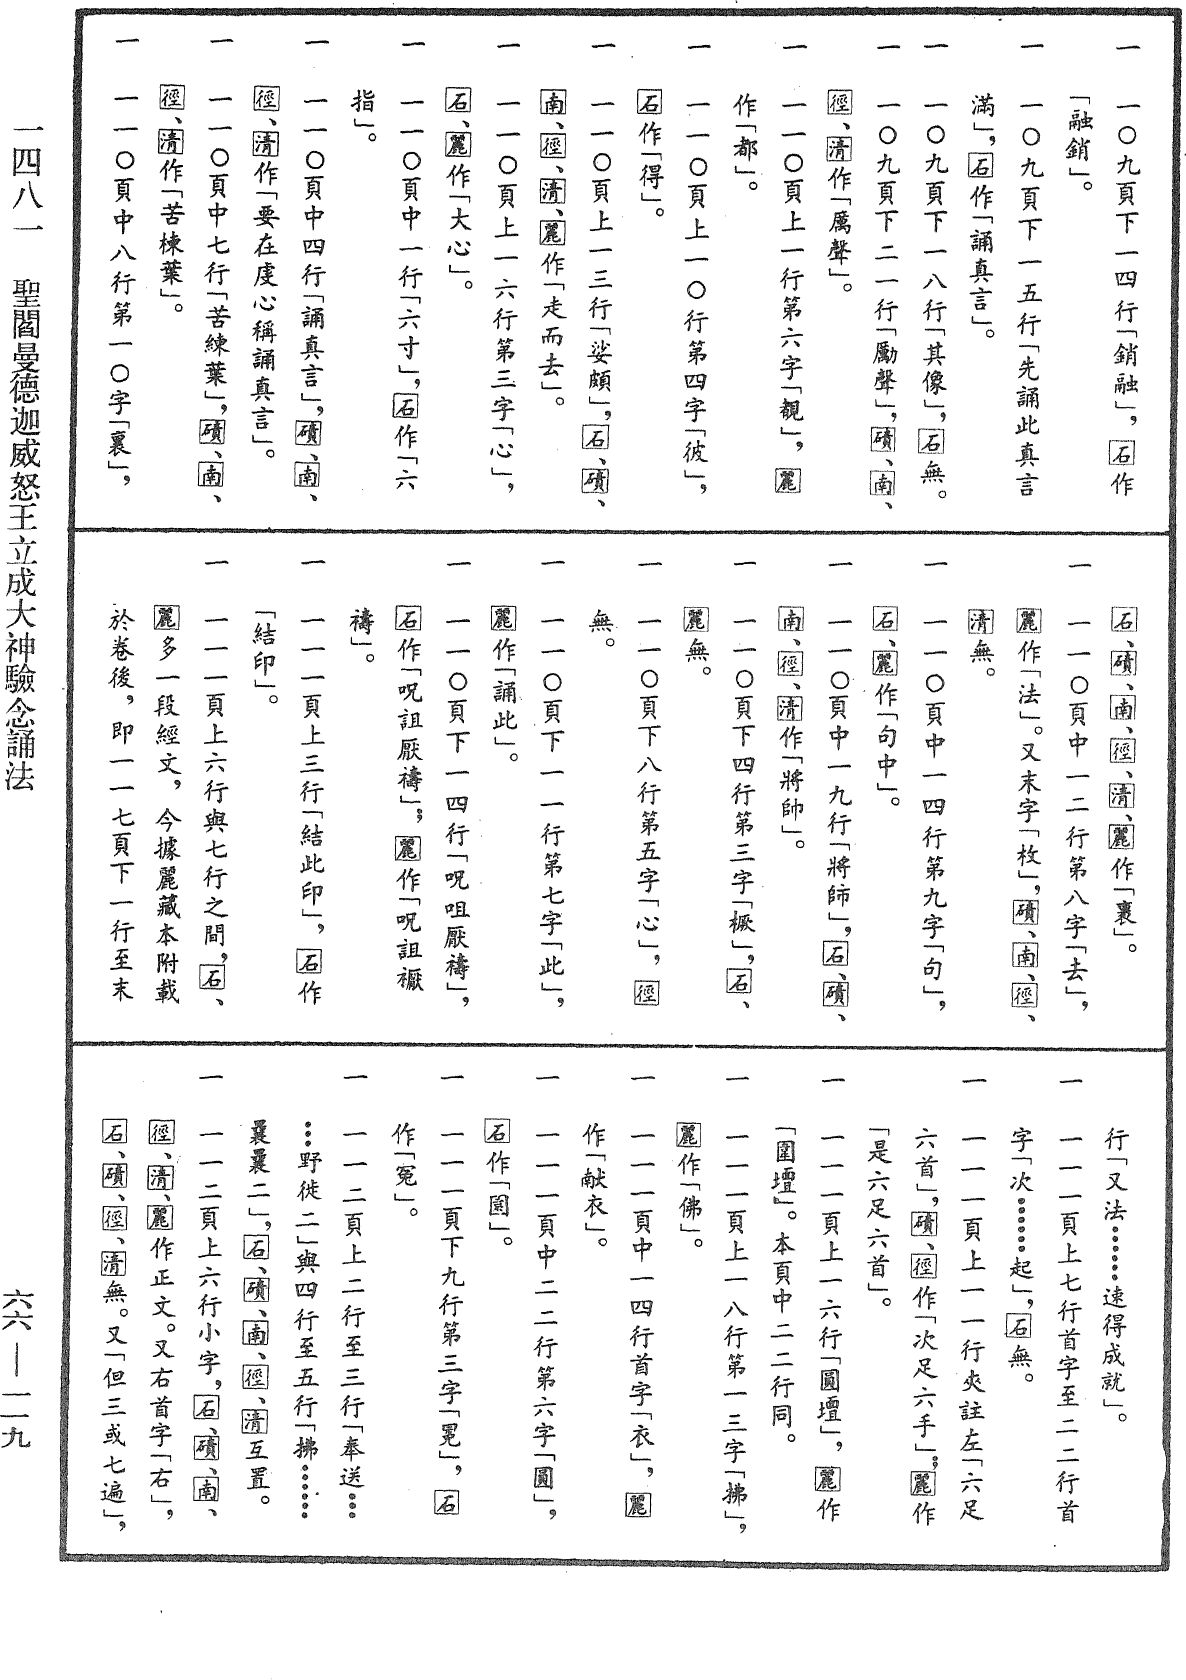 一　一〇九頁下一四行「銷融」，石作
「融銷」。
一　一〇九頁下一五行「先誦此真言
滿」，石作「誦真言」。
一　一〇九頁下一八行「其像」，石無。
一　一〇九頁下二一行「勵聲」，磧、南、
徑、清作「厲聲」。
一　一一〇頁上一行第六字「覩」，麗
作「都」。
一　一一〇頁上一〇行第四字「彼」，
石作「得」。
一　一一〇頁上一三行「娑頗」，石、磧、
南、徑、清、麗作「走而去」。
一　一一〇頁上一六行第三字「心」，
石、麗作「大心」。
一　一一〇頁中一行「六寸」，石作「六
指」。
一　一一〇頁中四行「誦真言」，磧、南、
徑、清作「要在虔心稱誦真言」。
一　一一〇頁中七行「苦練葉」，磧、南、
徑、清作「苦楝葉」。
一　一一〇頁中八行第一〇字「裏」，
石、磧、南、徑、清、麗作「裹」。
一　一一〇頁中一二行第八字「去」，
麗作「法」。又末字「枚」，磧、南、徑、
清無。
一　一一〇頁中一四行第九字「句」，
石、麗作「句中」。
一　一一〇頁中一九行「將師」，石、磧、
南、徑、清作「將帥」。
一　一一〇頁下四行第三字「橛」，石、
麗無。
一　一一〇頁下八行第五字「心」，徑
無。
一　一一〇頁下一一行第七字「此」，
麗作「誦此」。
一　一一〇頁下一四行「呪咀厭禱」，
石作「呪詛厭禱」；麗作「呪詛禰
禱」。
一　一一一頁上三行「結此印」，石作
「結印」。
一　一一一頁上六行與七行之間，石、
麗多一段經文，今據麗藏本附載
於卷後，即一一七頁下一行至末
行「又法……速得成就」。
一　一一一頁上七行首字至二二行首
字「次……起」，石無。
一　一一一頁上一一行夾註左「六足
六首」，磧、徑作「次足六手」；麗作
「是六足六首」。
一　一一一頁上一六行「圓壇」，麗作
「圍壇」。本頁中二二行同。
一　一一一頁上一八行第一三字「拂」，
麗作「佛」。
一　一一一頁中一四行首字「衣」，麗
作「献衣」。
一　一一一頁中二二行第六字「圓」，
石作「圍」。
一　一一一頁下九行第三字「冕」，石
作「冤」。
一　一一二頁上二行至三行「奉送…
…野徙二」與四行至五行「拂……
曩曩二」，石、磧、南、徑、清互置。
一　一一二頁上六行小字，石、磧、南、
徑、清、麗作正文。又右首字「右」，
石、磧、徑、清無。又「但三或七遍」，
一四八一　聖閻曼德迦威怒王立成大神驗念誦法
六六—一一九